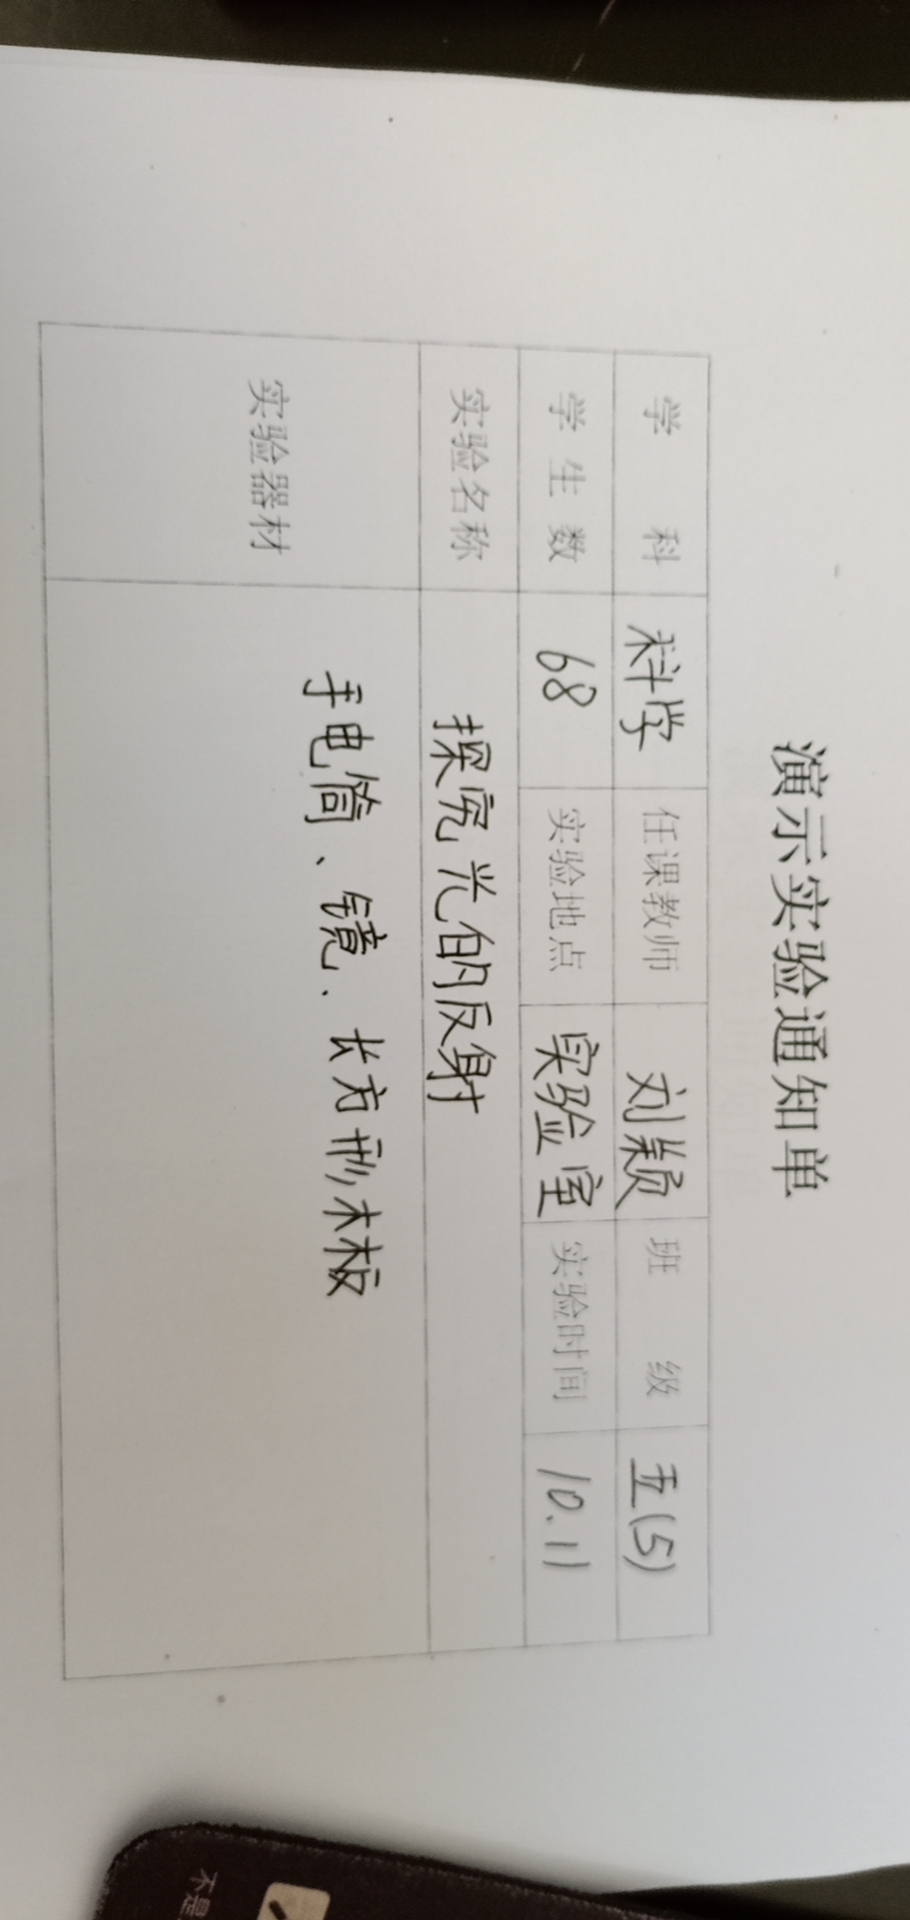 演示实验通知单
学 科 科学 任课教师 刘颖 班 级 五(5)
学 生 数 68 实验地点 实验室 实验时间 10.11
实验名称 探究光的反射
实验器材 手电筒、镜、长方形木板
不是